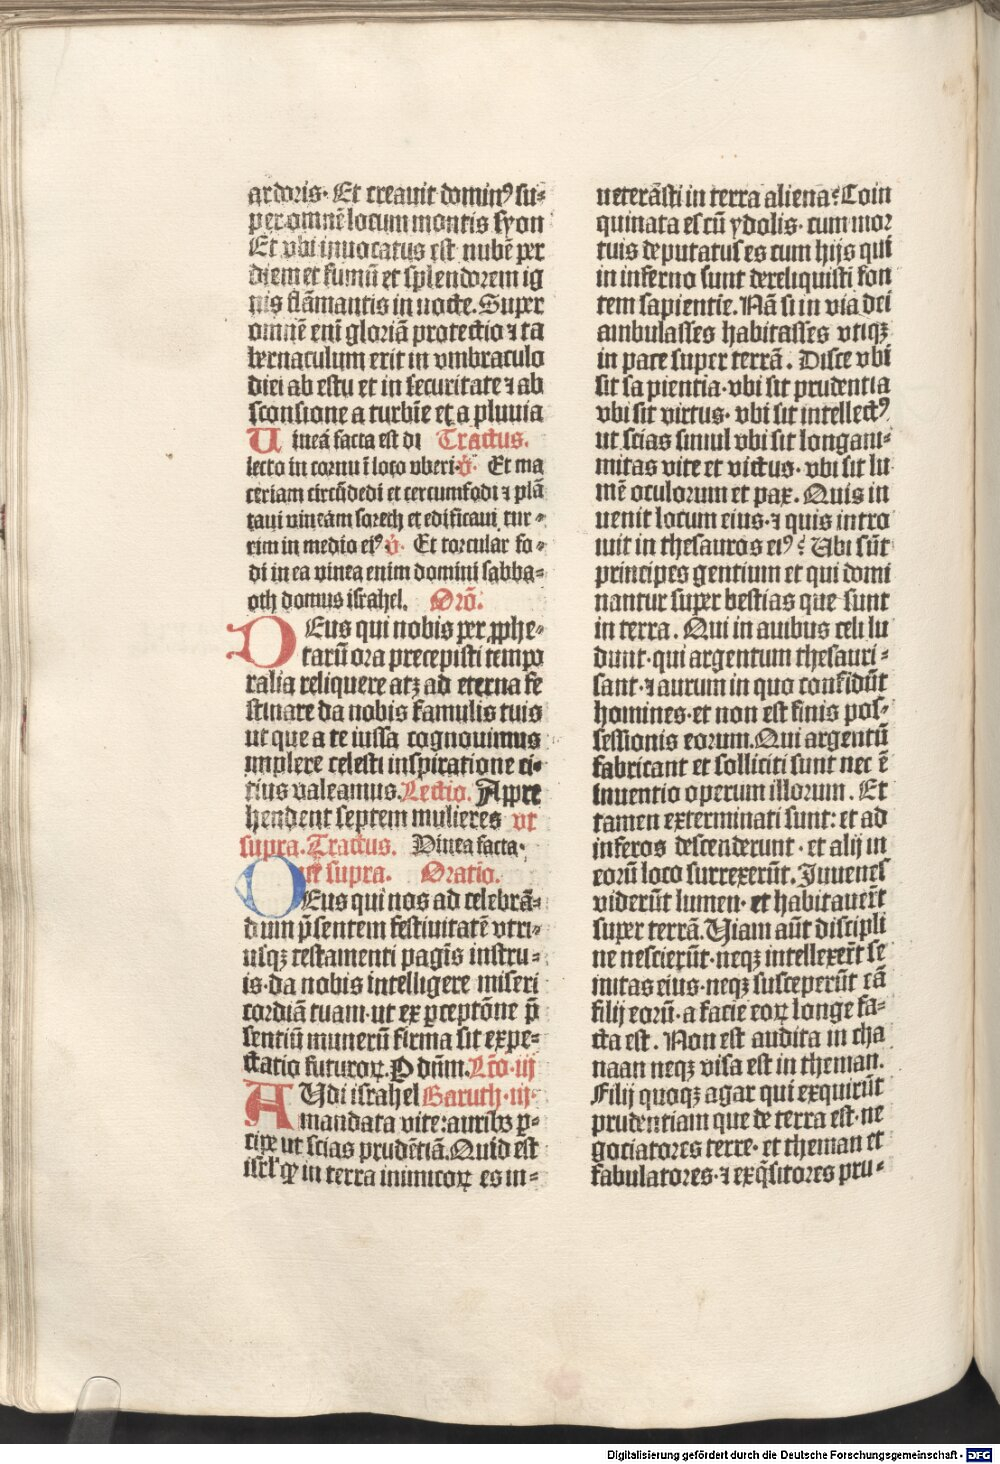 ardoris· Et creauit dominꝰ su-
per omnē locum montis syon
Et vbi inuocatus est nubē per
diem et fumū et splendorem ig
nis flāmantis in nocte. Super
omnē eni gloriā protectio ⁊ ta
bernaculum erit in vmbraculo
diei ab estu et in securitate ⁊ ab
sconsione a turbīe et a pluuia
Uineā facta est di Tractus.
lecto in cornu ī loco vberi·v̄· Et ma
ceriam circūdedi et circumfodi ⁊ plā
taui vineam sorech et edificaui tur-
rim in medio eiꝰ v̄· Et torcular fo-
di in ea vinea enim domini sabba-
oth domus israhel. Orō.
DEus qui nobis per ꝓphe-
tarū ora precepisti tempo
ralia reliquere atꝫ ad eterna fe
stinare da nobis famulis tuis
ut que a te iussa cognouimus
implere celesti inspiratione ci-
tius valeamus. Lectio. Appre
hendent septem mulieres vt
supra. Tractus. Vinea facta·
ut supra. Oratio.
DEus qui nos ad celebrā-
dum p̄sentem festiuitatē vtri-
usqꝫ testamenti pagīs instru-
is·da nobis intelligere miseri
cordiā tuam·ut ex ꝑceptōne p̄
sentiū munerū firma sit expe-
ctatio futuroꝝ. P dūm. Lc̄o·iij
AUdi israhel Baruch·iij·
mandata vite:auribꝫ ꝑ-
cipe ut scias prudētiā. Quid est
isrl' qꝫ in terra inimicoꝝ es in-
ueterāsti in terra aliena? Coin
quinatꝰ es cū ydolis· cum mor
tuis deputatus es cum hijs qui
in inferno sunt dereliquisti fon
tem sapientie. Nā si in via dei
ambulasses habitasses vtiqꝫ
in pace super terrā. Disce vbi
sit sa pientia·vbi sit prudentia
vbi sit virtus· vbi sit intellectꝰ
ut scias simul vbi sit longani-
mitas vite et victus· vbi sit lu
mē oculorum et pax. Quis in
uenit locum eius·⁊ quis intro
iuit in thesauros eiꝰ? Ubi sūt
principes gentium et qui domi
nantur super bestias que sunt
in terra. Qui in auibus celi lu
dunt·qui argentum thesauri-
sant·⁊ aurum in quo confidūt
homines·et non est finis pos-
sessionis eorum. Qui argentū
fabricant et solliciti sunt nec ē
inuentio operum illorum. Et
tamen exterminati sunt: et ad
inferos descenderunt·et alij in
eorū loco surrexerūt. Juuenes
viderūt lumen· et habitauerūt
super terrā. Uiam aūt discipli
ne nescierūt·neqꝫ intellexerūt se
mitas eius·neqꝫ susceperūt eā
filij eorū·a facie eoꝝ longe fa-
cta est. Non est audita in cha
naan neqꝫ visa est in theman.
Filij quoqꝫ agar qui exquirūt
prudentiam que de terra est·ne
gociatores terre· et theman et
fabulatores·⁊ exq̄sitores pru-
Digitalisierung gefördert durch die Deutsche Forschungsgemeinschaft - DFG